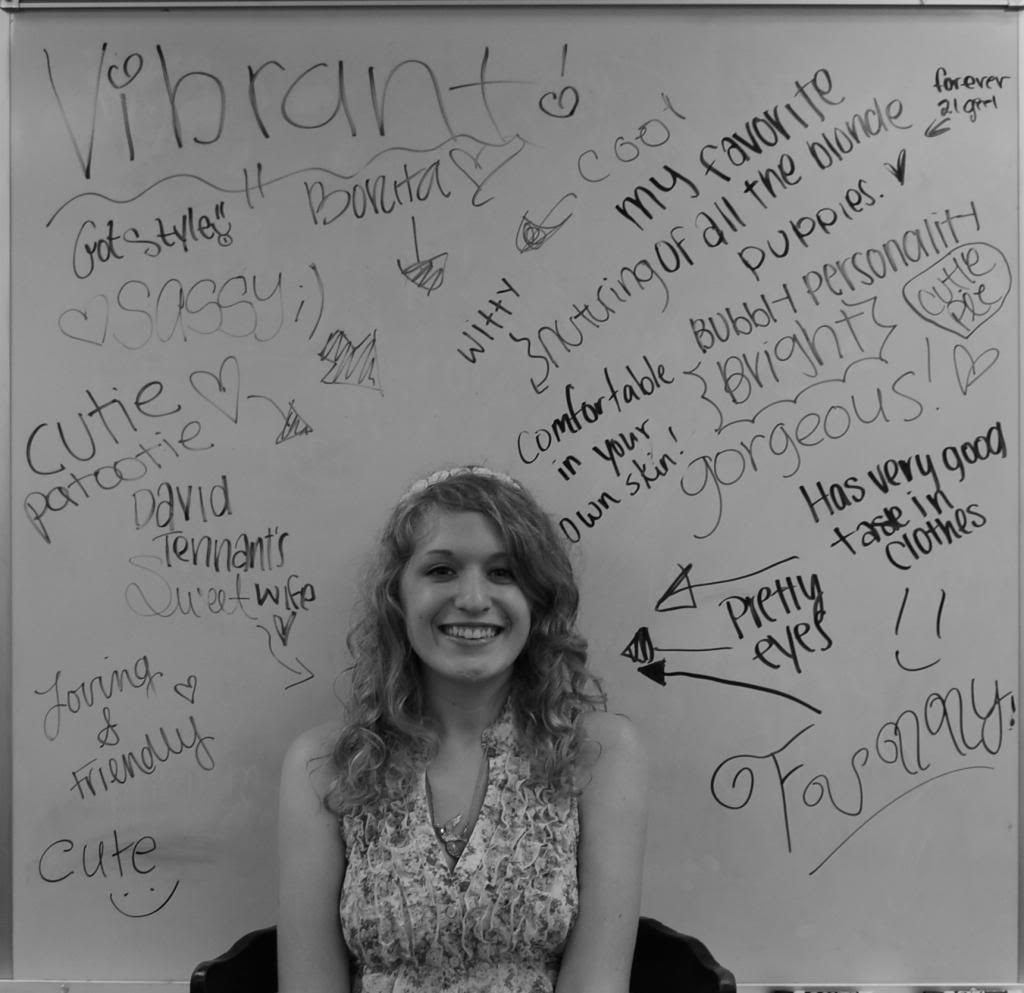 Vibrant!
Bonita
Got style!!
Sassy ;)
Cutie
patootie
David
Tennant's
Sweet wife
Loving
&
Friendly
cute
cool
my favorite
of all the blonde
puppies.
forever
21 girl
witty
nuturing
Bubbly personality
{Bright}
cutie
pie
comfortable
in your
own skin!
gorgeous!
Has very good
taste in
clothes
Pretty
eyes